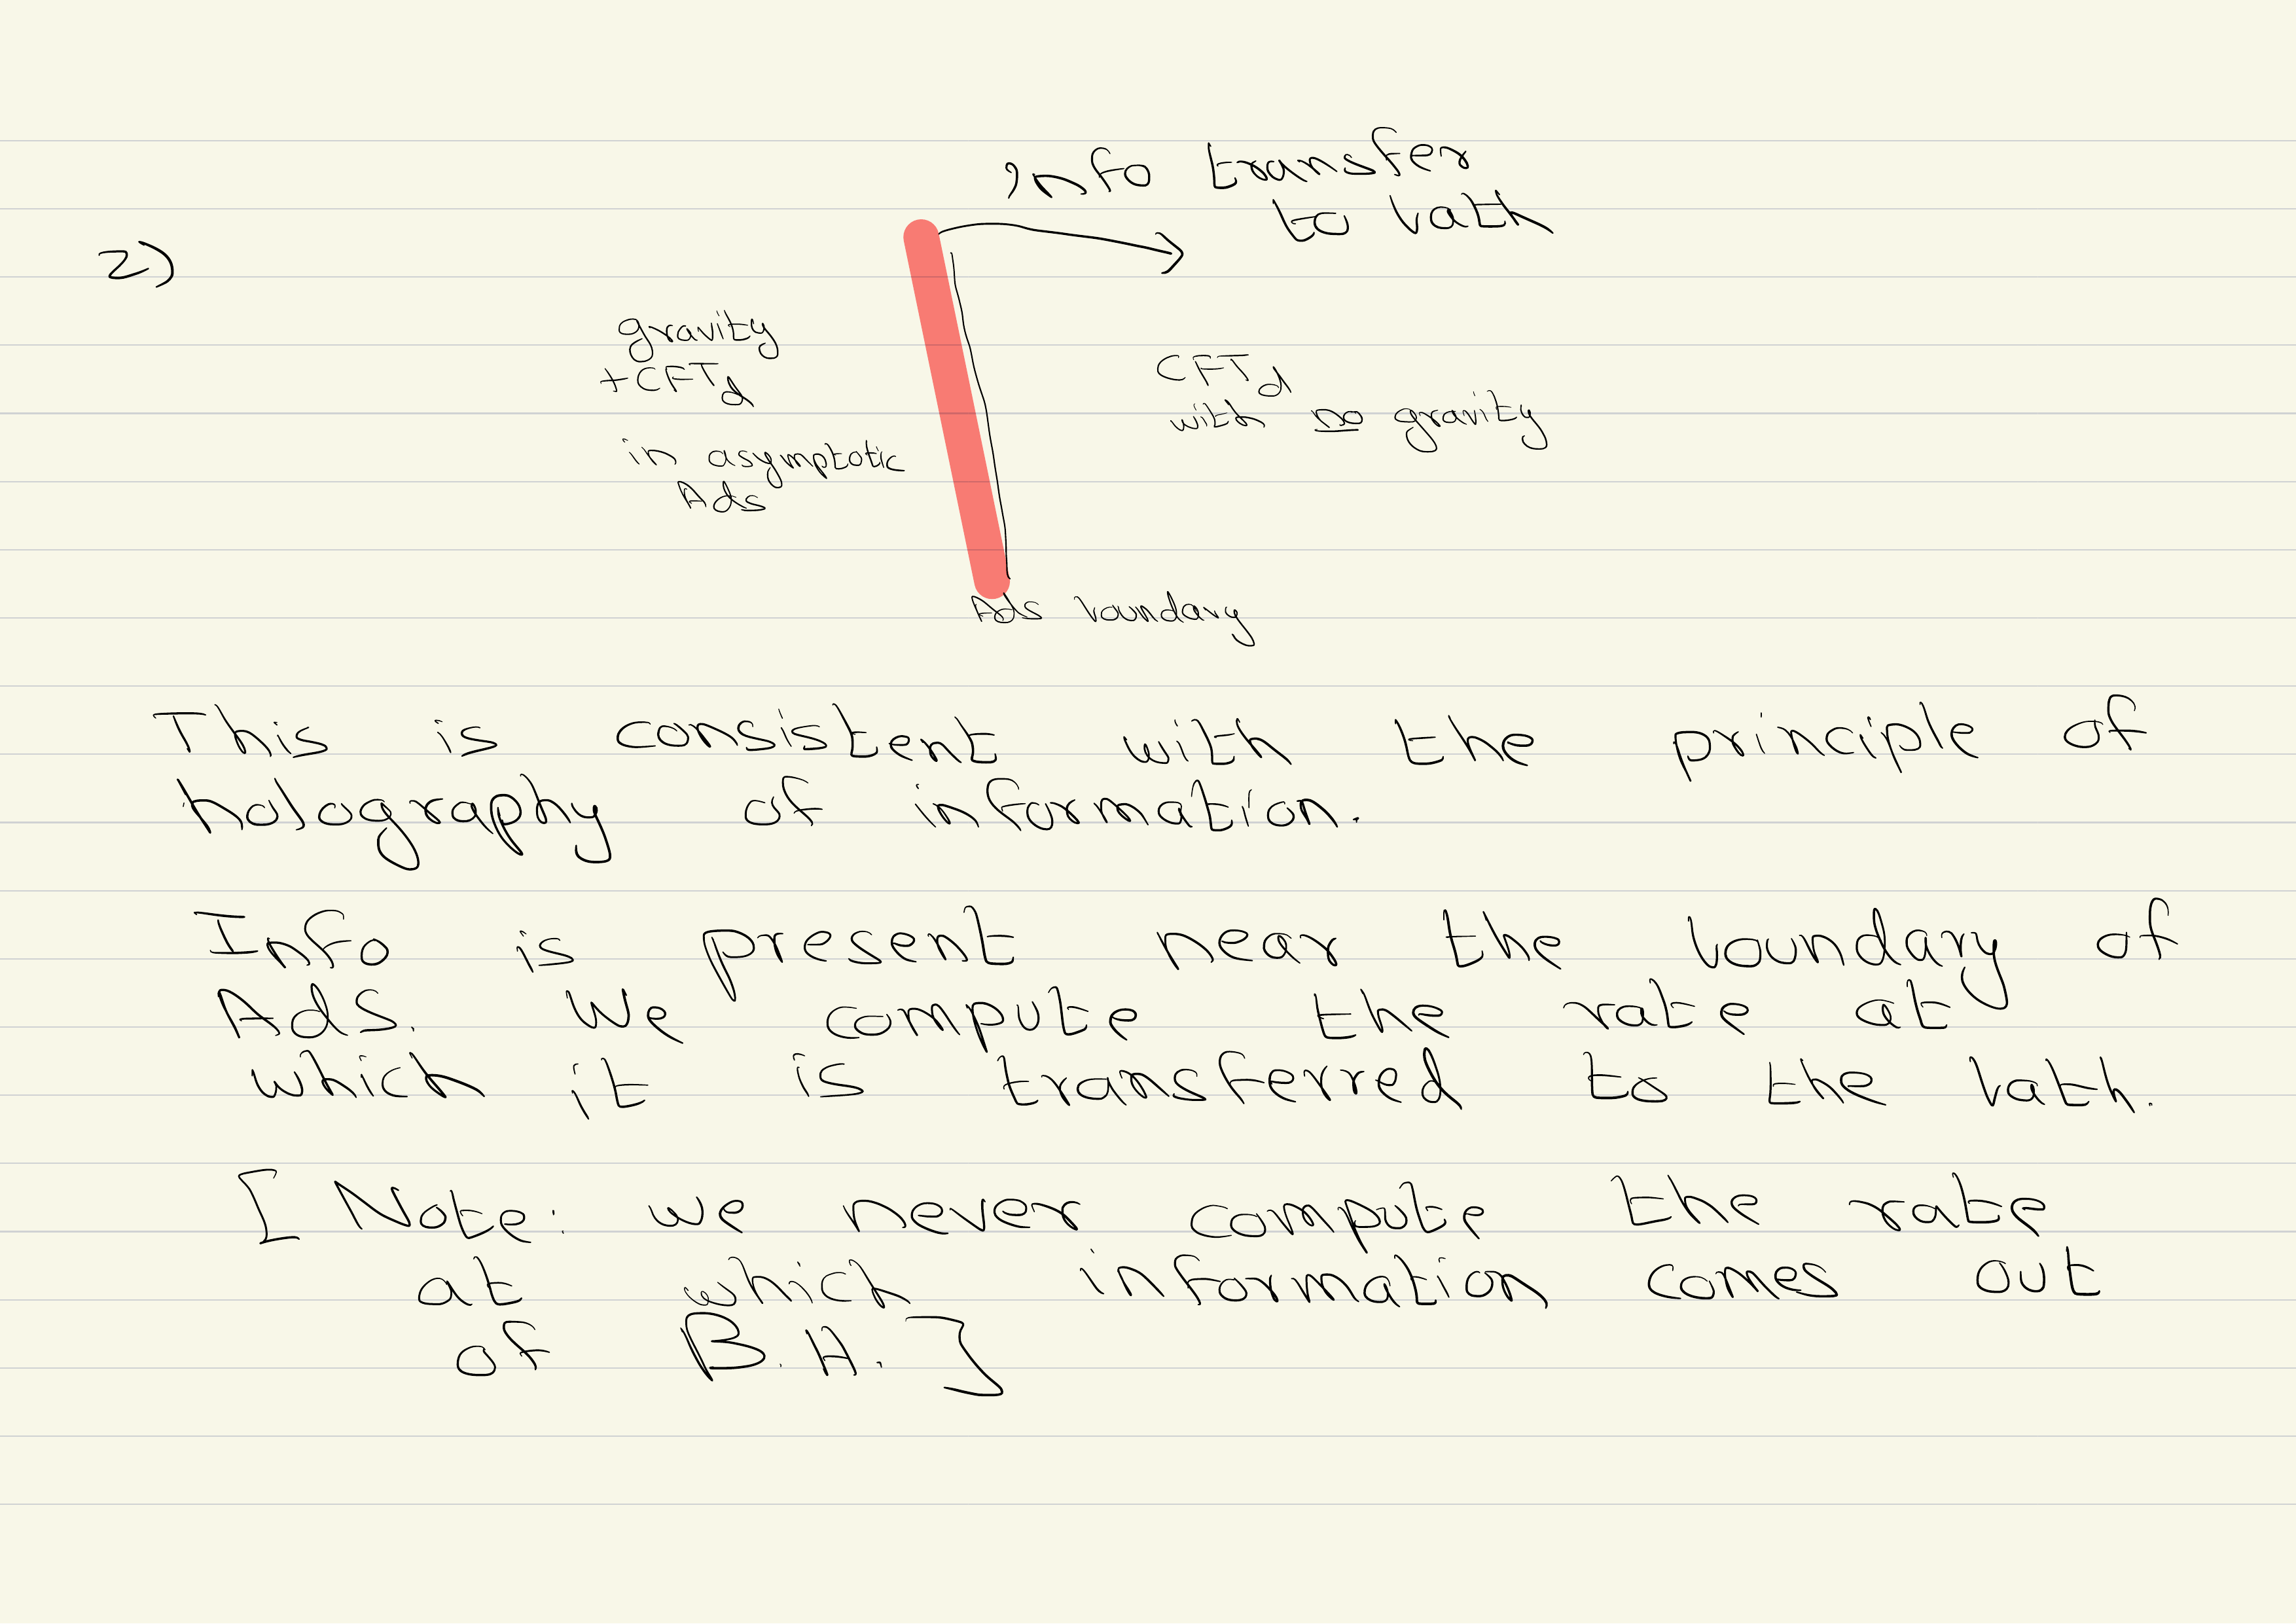 info transfer
to bath
2)
gravity
+CFT_d
in asymptotic
Ads
CFT_d
with no gravity
Ads boundary
This is consistent with the principle of
holography of information.
Info is present near the boundary of
Ads. We compute the rate at
which it is transferred to the bath.
[Note: we never compute the rate
at which information comes out
of B.H.]